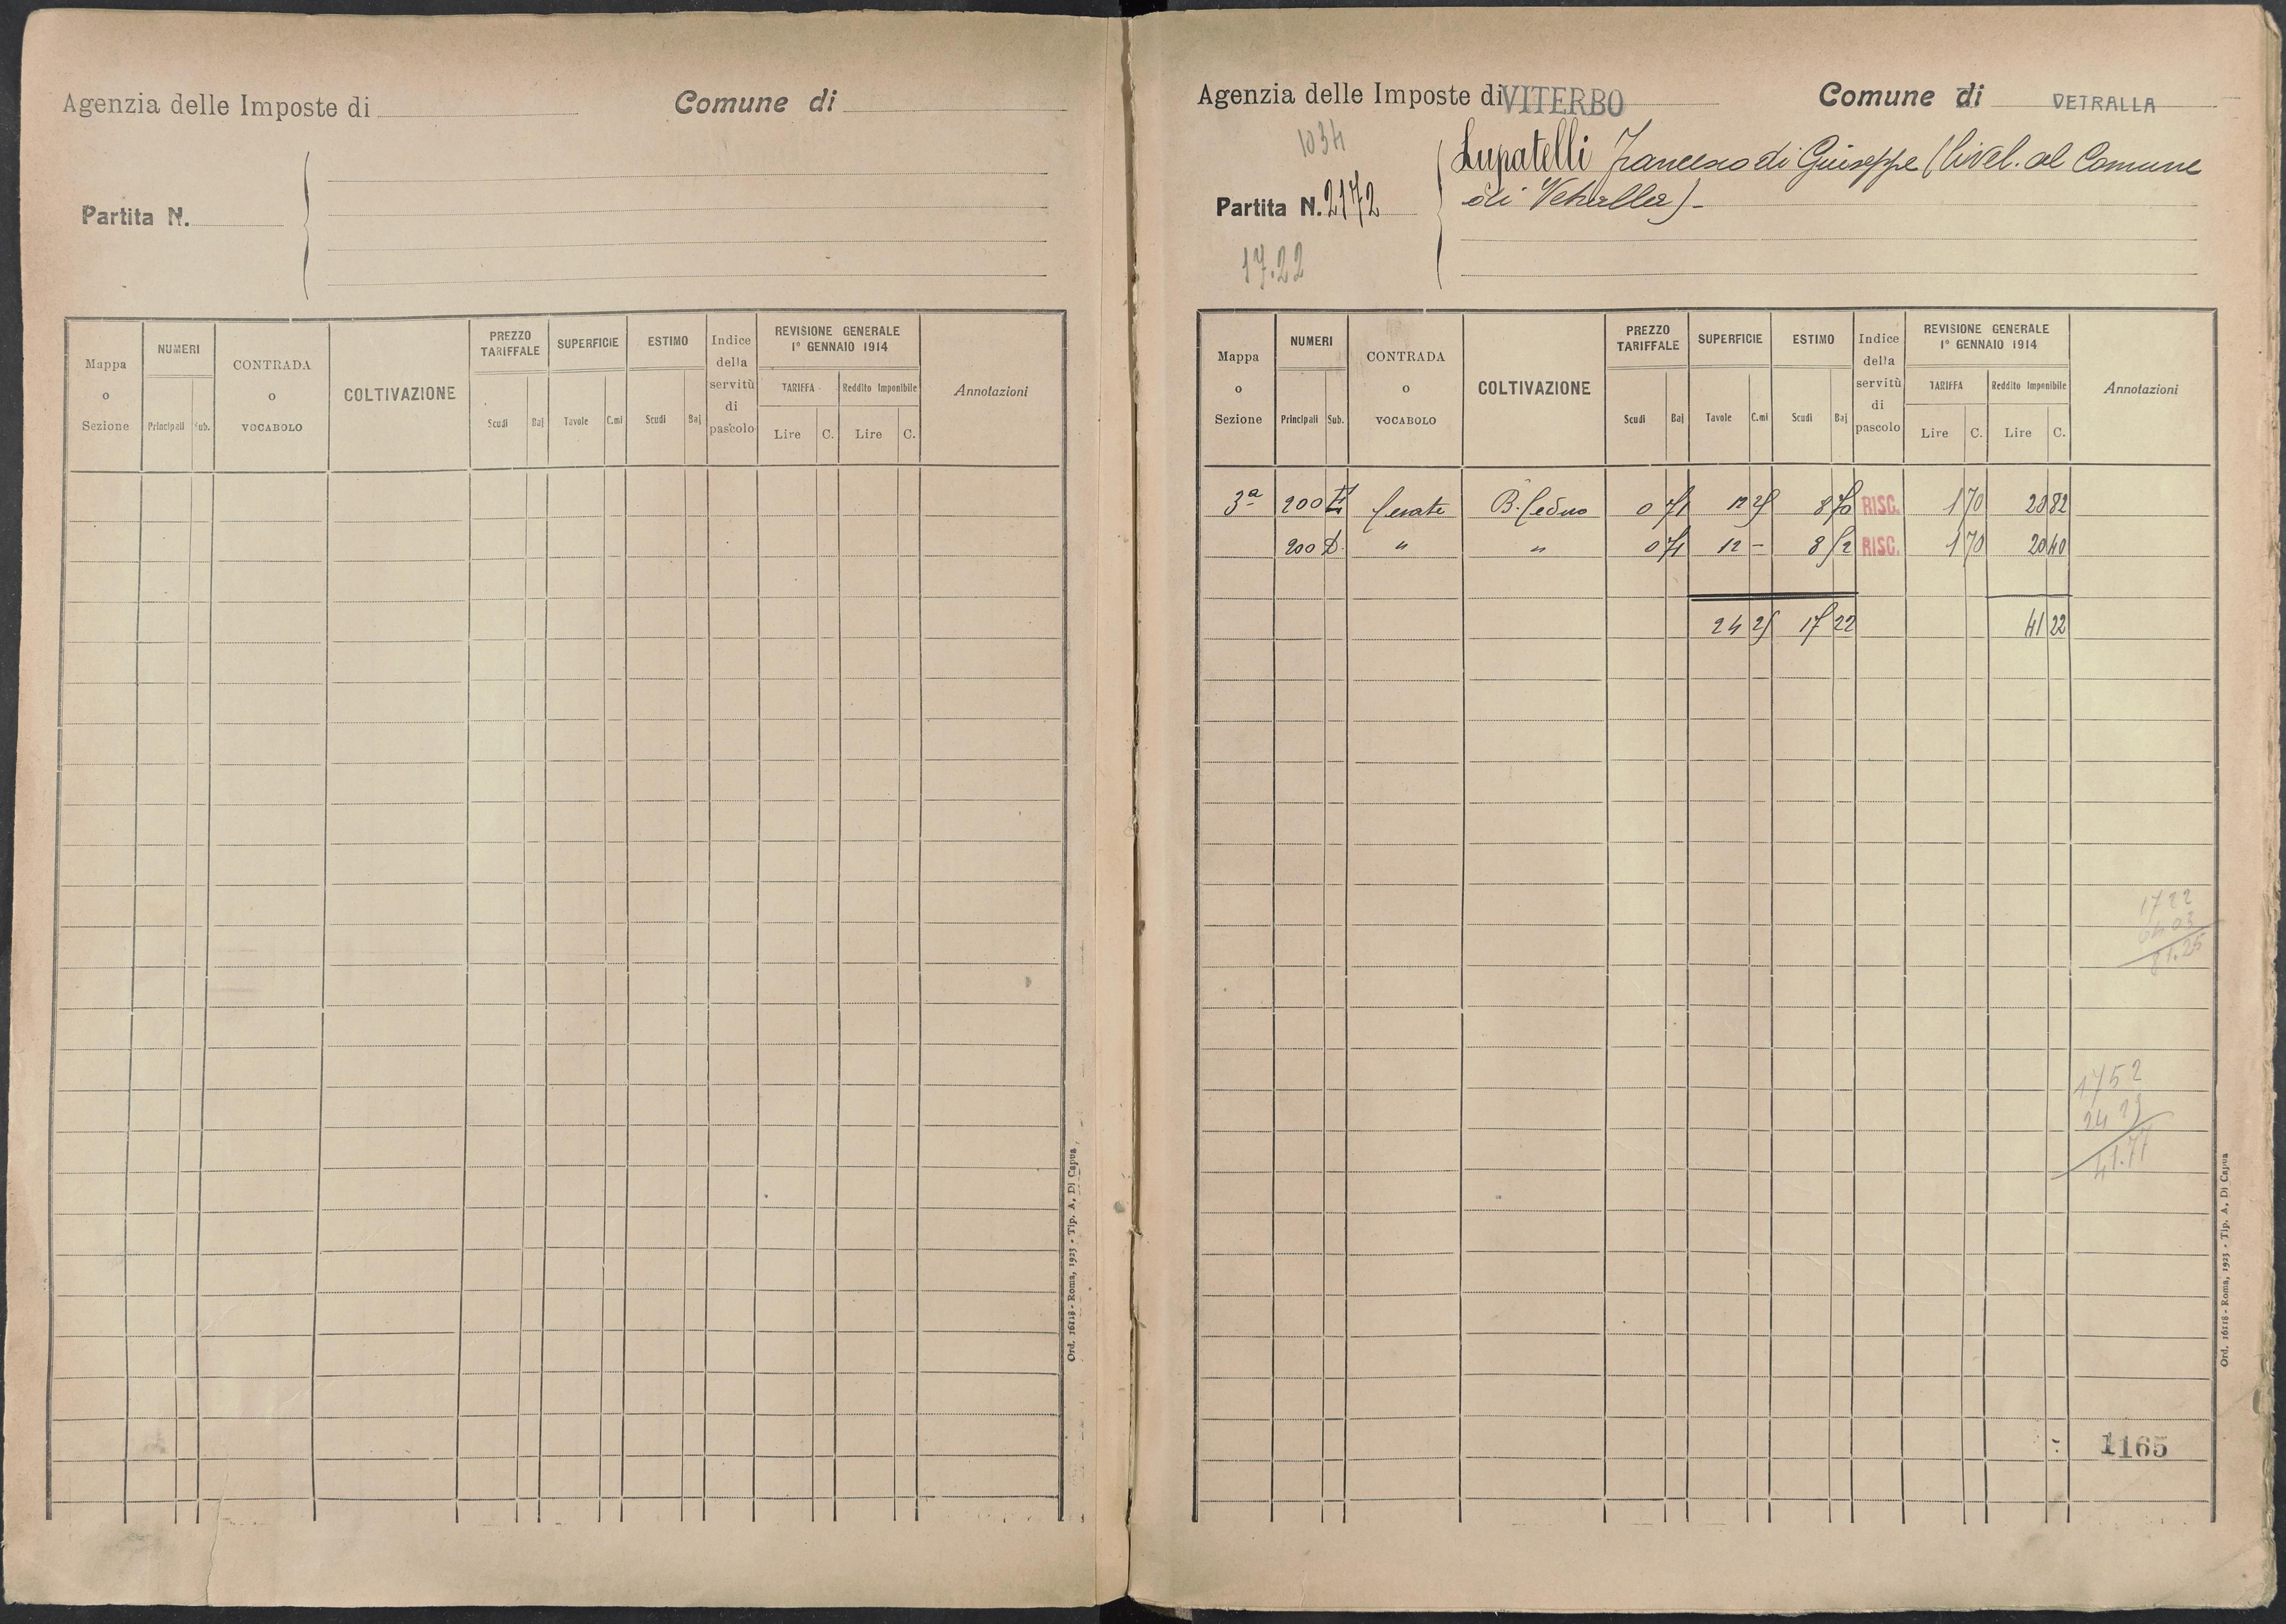 Agenzia delle Imposte di
Comune di
Partita N.
Mappa o Sezione
NUMERI
Principali Sub.
CONTRADA o VOCABOLO
COLTIVAZIONE
PREZZO TARIFFALE
Scudi Baj
SUPERFICIE
Tavole C.mi
ESTIMO
Scudi Baj
Indice della servitù di pascolo
REVISIONE GENERALE
1° GENNAIO 1914
TARIFFA
Lire C.
Reddito Imponibile
Lire C.
Annotazioni
Ord. 16118 - Roma, 1923 - Tip. A. Di Capua
Agenzia delle Imposte di VITERBO
Comune di VETRALLA
1034
Lupatelli Francesco di Giuseppe (livel. al Comune
di Vetralla) -
Partita N. 2172
17.22
Mappa o Sezione
NUMERI
Principali Sub.
CONTRADA o VOCABOLO
COLTIVAZIONE
PREZZO TARIFFALE
Scudi Baj
SUPERFICIE
Tavole C.mi
ESTIMO
Scudi Baj
Indice della servitù di pascolo
REVISIONE GENERALE
1° GENNAIO 1914
TARIFFA
Lire C.
Reddito Imponibile
Lire C.
Annotazioni
3ª 200 B. Ceduo 0 71 12 25 8 70 RISC. 1 70 20 82
200 D. " " 0 71 12 - 8 52 RISC. 1 70 20 40
24 25 17 22 41 22
1722
6403
81.25
1752
24 25
41.77
1165
Ord. 16118 - Roma, 1923 - Tip. A. Di Capua